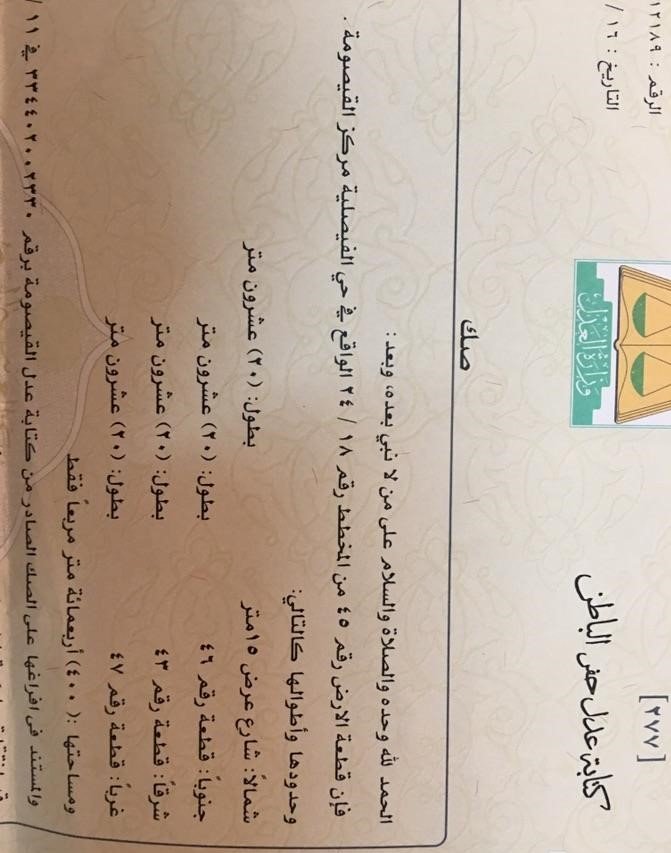 [٢٧٧]
كتابة عدل حفر الباطن
وزارة العدل
الرقم : ١٢١٨٩
التاريخ : ١٦ /
صك
الحمد لله وحده والصلاة والسلام على من لا نبي بعده، وبعد:
فإن قطعة الارض رقم ٤٥ من المخطط رقم ١٨ / ٢٤ الواقع في حي الفيصلية مركز القيصومة .
وحدودها وأطوالها كالتالي:
شمالاً: شارع عرض ١٥متر بطول: (٢٠) عشرون متر
جنوباً: قطعة رقم ٤٦ بطول: (٢٠) عشرون متر
شرقاً: قطعة رقم ٤٣ بطول: (٢٠) عشرون متر
غرباً: قطعة رقم ٤٧ بطول: (٢٠) عشرون متر
ومساحتها :(٤٠٠) أربعمائة متر مربعاً فقط
والمستند في افراغها على الصك الصادر من كتابة عدل القيصومة برقم ٣٣٤٤٠٢٠٠٢٣٣٠ في ١١ /